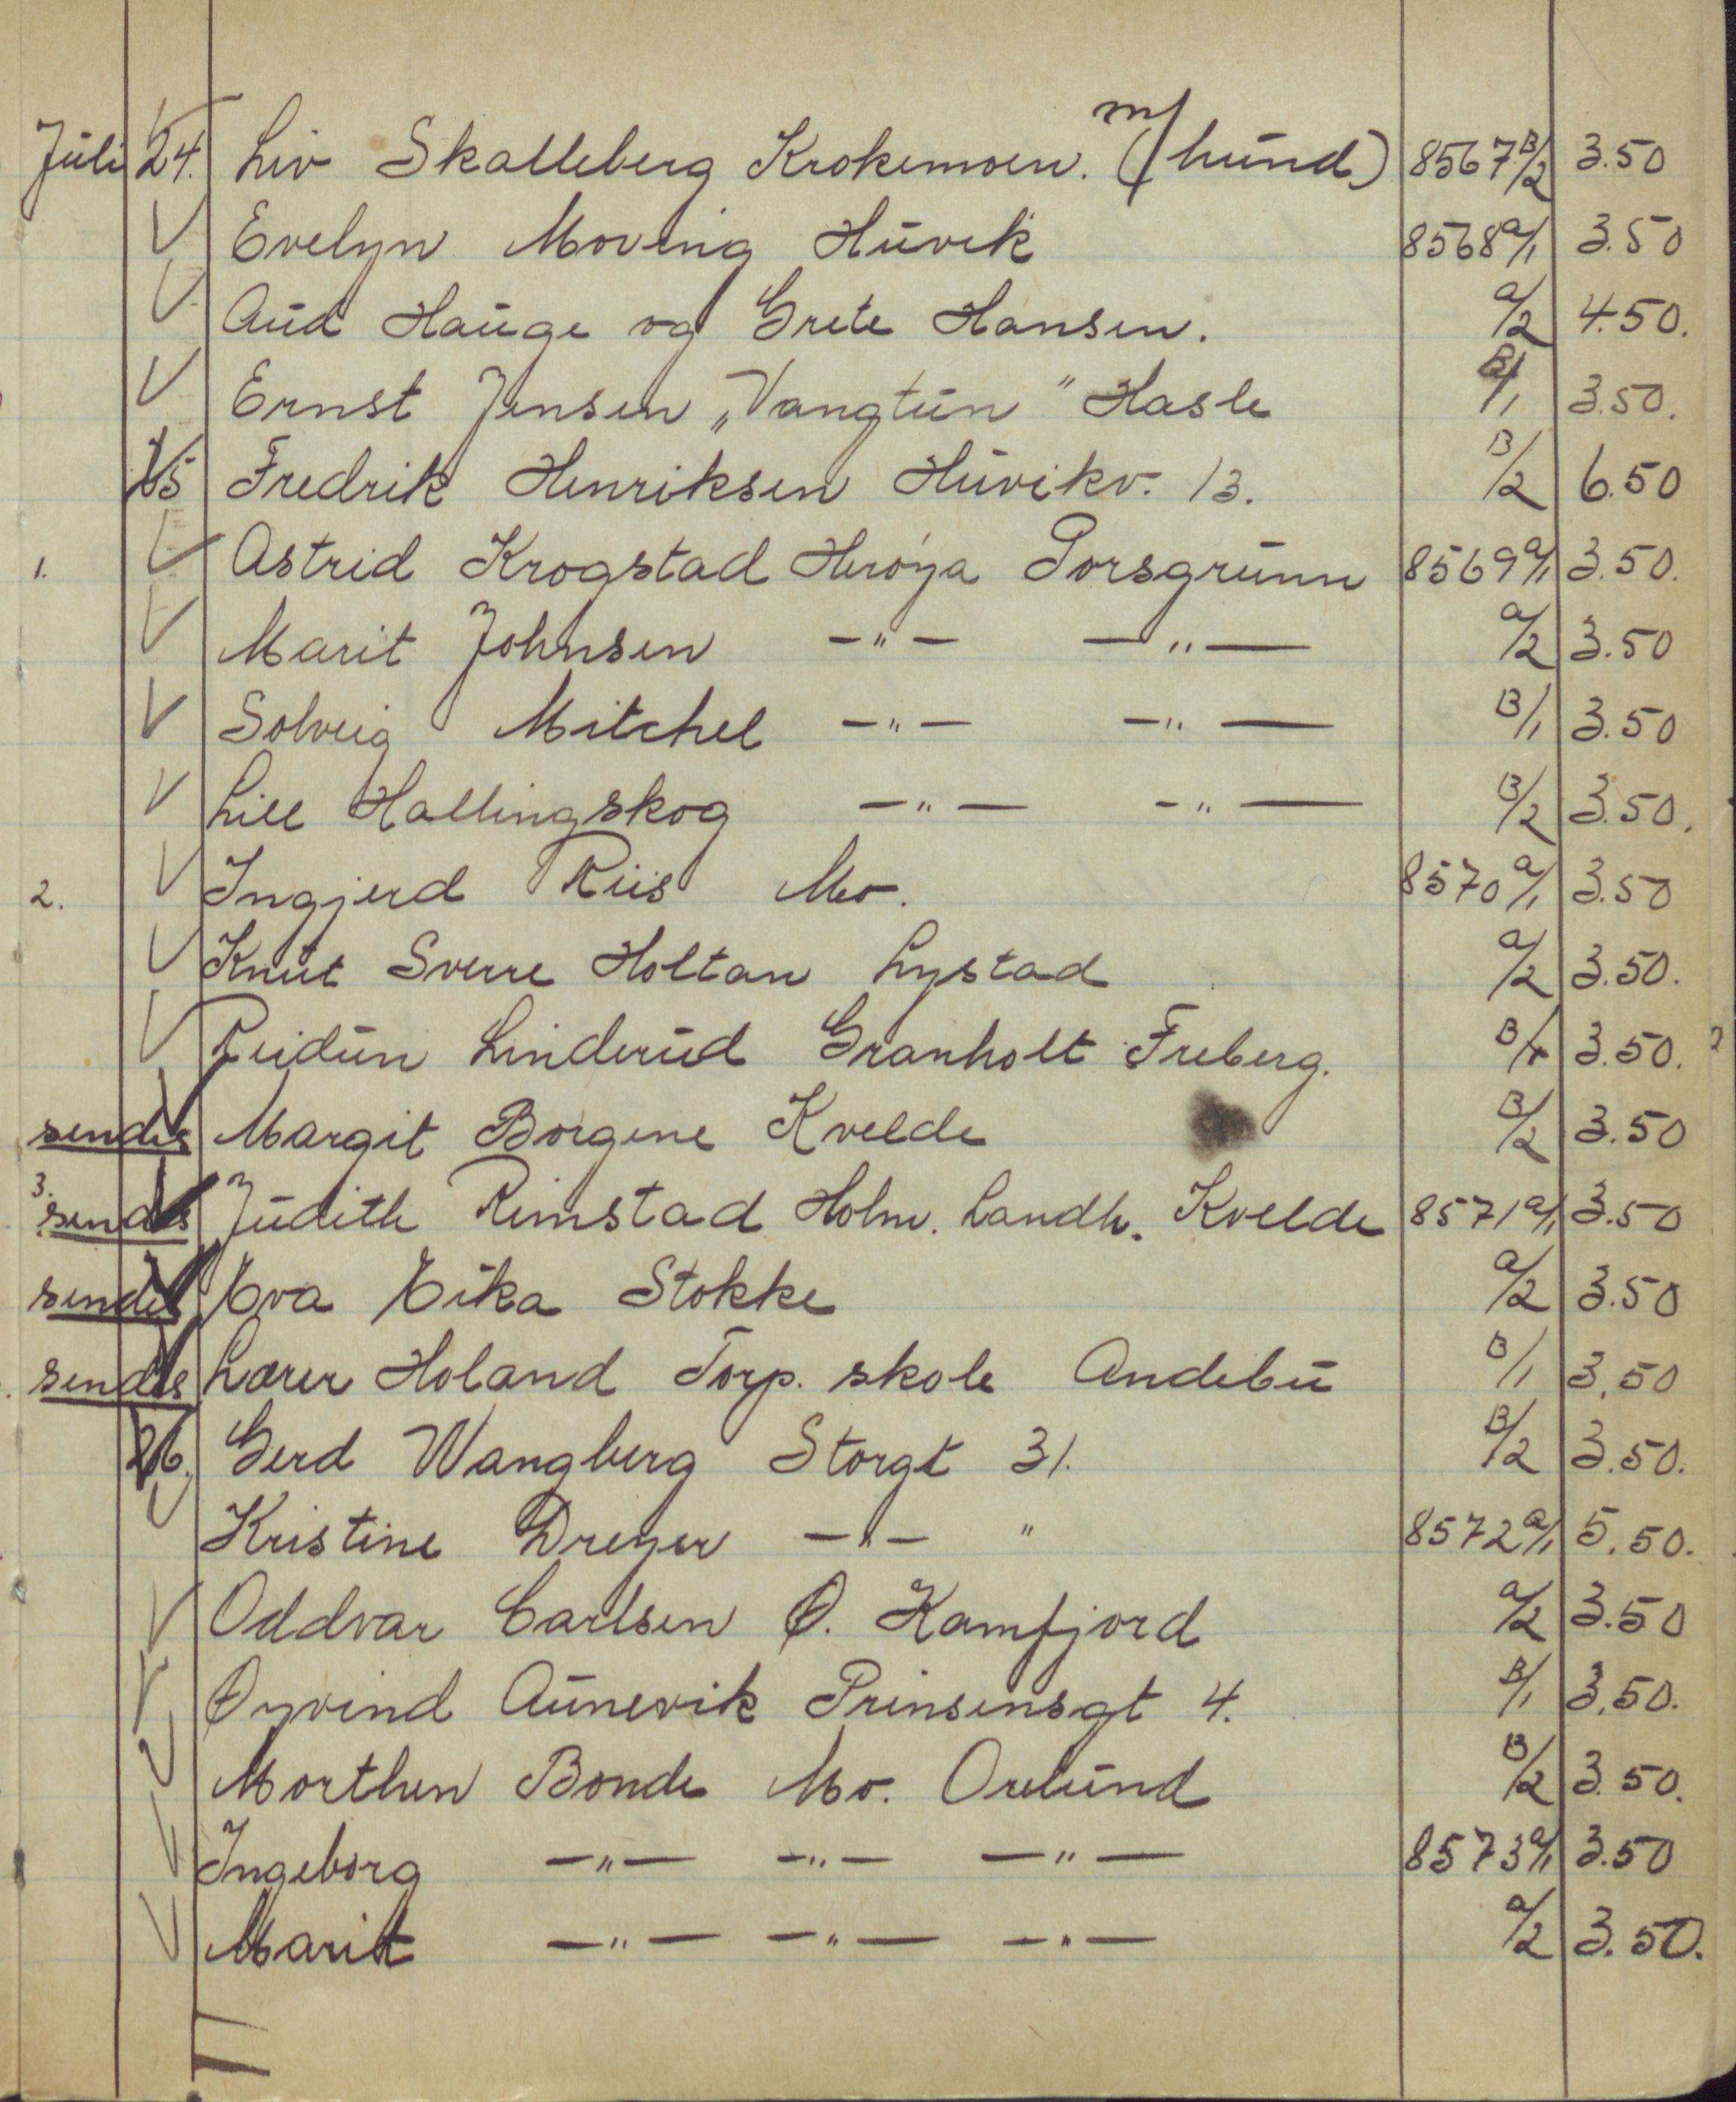 Juli 24. Liv Skalleberg Krokemoen. (m/hund) 8567 B/2 3.50
Evelyn Moving Huvik 8568 a/1 3.50
Aud Hauge og Grete Hansen. a/2 4.50.
Ernst Jensen „Vangtun" Hasle B/1 3.50.
25 Fredrik Henriksen Huvikv. 13. B/2 6.50
1. Astrid Krogstad Herøya Porsgrunn 8569 a/1 3.50.
Marit Johnsen —"— —"— a/2 3.50
Solveig Mitchel —"— —"— B/1 3.50
Lill Hallingskog —"— —"— B/2 3.50.
2. Ingjerd Riis Mo. 8570 a/1 3.50
Knut Sverre Holtan Lystad a/2 3.50.
Reidun Linderud Granholt Freberg. B/1 3.50.
sendes Margit Borgene Kvelde B/2 3.50
3. sendes Judith Rimstad Holm. Landh. Kvelde 8571 a/1 3.50
sendes Eva Eika Stokke a/2 3.50
sendes Lærer Holand Torp. skole Andebu B/1 3.50
26. Gerd Wangberg Storgt 31. B/2 3.50.
Kristine Dreyer —"— " 8572 a/1 5.50.
Oddvar Carlsen Ø. Kamfjord a/2 3.50
Øyvind Aunevik Prinsensgt 4. B/1 3.50.
Morthen Bonde Mo. Orelund B/2 3.50.
Ingeborg —"— —"— —"— 8573 a/1 3.50
Marit —"— —"— —"— a/2 3.50.